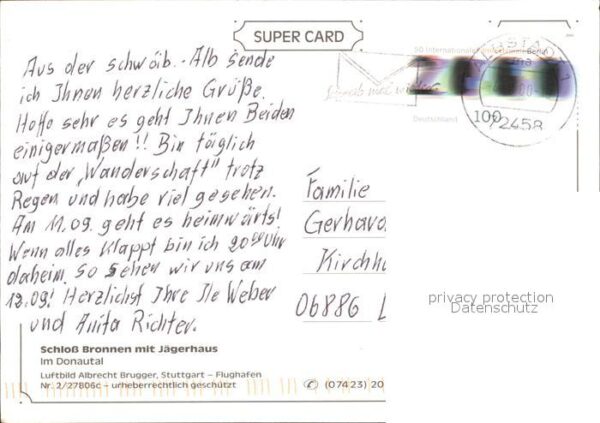 SUPER CARD
Aus der schwäb. Alb sende
ich Ihnen herzliche Grüße.
Hoffe sehr es geht Ihnen Beiden
einigermaßen!! Bin täglich
auf der „Wanderschaft" trotz
Regen und habe viel gesehen.
Am 11.09. geht es heimwärts!
Wenn alles klappt bin ich 20⁰⁰ Uhr
daheim. So sehen wir uns am
12.09! Herzlichst Ihre Ile Weber
und Anita Richter.
50 Internationale Berlin
Deutschland
100
72458
Familie
Kirchh
06886 L
privacy protection
Datenschutz
Schloß Bronnen mit Jägerhaus
Im Donautal
Luftbild Albrecht Brugger, Stuttgart – Flughafen
Nr. 2/27806c – urheberrechtlich geschützt
✆ (07423) 20